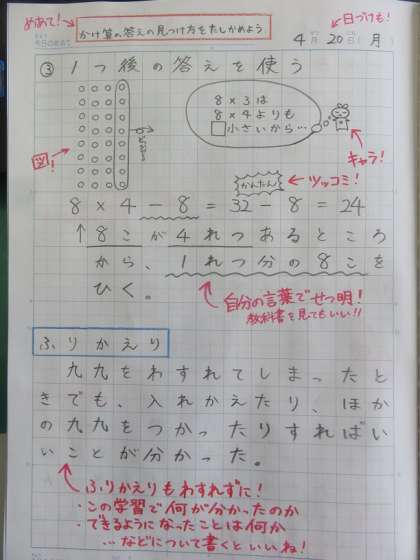 めあて!
かけ算の答えの見つけ方をたしかめよう
日づけも!
4月20日(月)
③ 1つ後の答えを使う
8×3は
8×4よりも
□小さいから…
図!
キャラ!
かんたん!
ツッコミ!
8×4-8=32-8=24
↑8こが4れつあるところ
から、1れつ分の8こを
ひく。
自分の言葉でせつ明!
教科書を見てもいい!!
ふりかえり
九九をわすれてしまったと
きでも、入れかえたり、ほか
の九九をつかったりすればい
いことが分かった。
ふりかえりもわすれずに!
・この学習で何が分かったのか
・できるようになったことは何か
…などについて書くといいね!